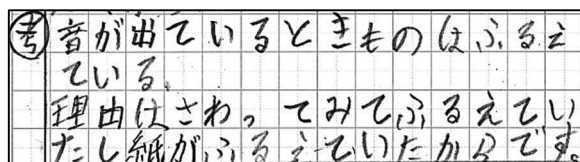 考 音が出ているときものはふるえ
ている。
理由はさわってみてふるえてい
たし紙がふるえていたからです